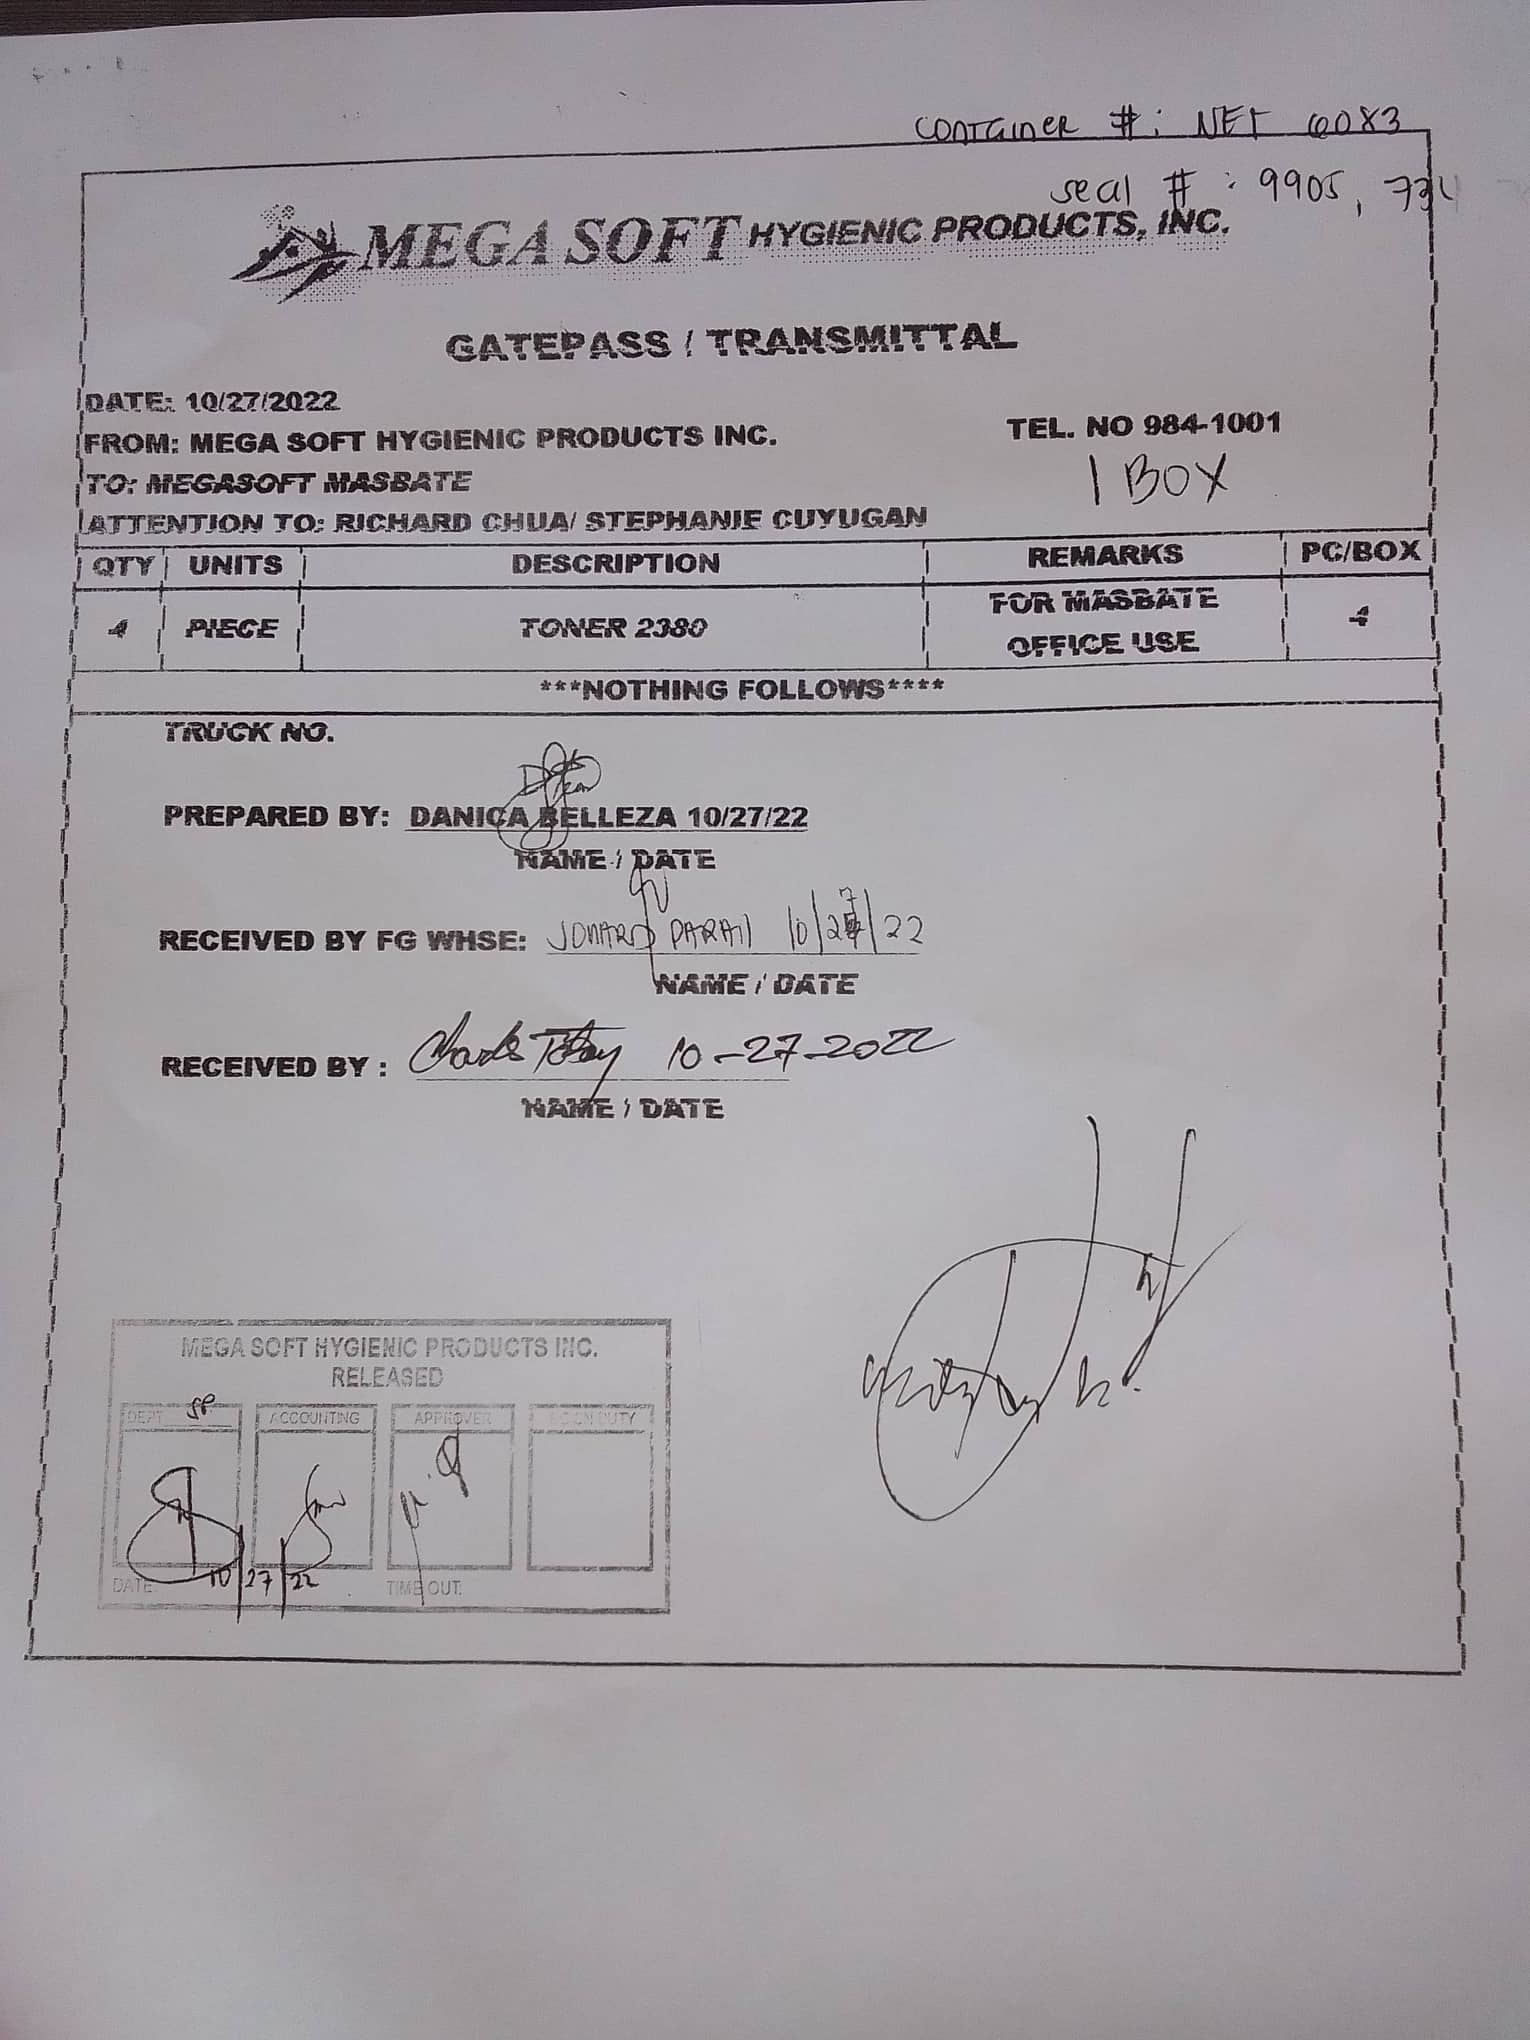 CONTAINER #: NET 6083
seal #: 9905,
MEGA SOFT HYGIENIC PRODUCTS, INC.
GATEPASS / TRANSMITTAL
DATE: 10/27/2022
FROM: MEGA SOFT HYGIENIC PRODUCTS INC. TEL. NO 984-1001
TO: MEGASOFT MASBATE 1 BOX
ATTENTION TO: RICHARD CHUA/ STEPHANIE CUYUGAN
QTY UNITS DESCRIPTION REMARKS PC/BOX
4 PIECE TONER 2380 FOR MASBATE OFFICE USE 4
***NOTHING FOLLOWS****
TRUCK NO.
PREPARED BY: DANICA BELLEZA 10/27/22
NAME / DATE
RECEIVED BY FG WHSE: 10/27/22
NAME / DATE
RECEIVED BY : 10-27-2022
NAME / DATE
MEGA SOFT HYGIENIC PRODUCTS INC.
RELEASED
DEPT SP ACCOUNTING APPROVER DUTY
DATE: 10/27/22 TIME OUT: